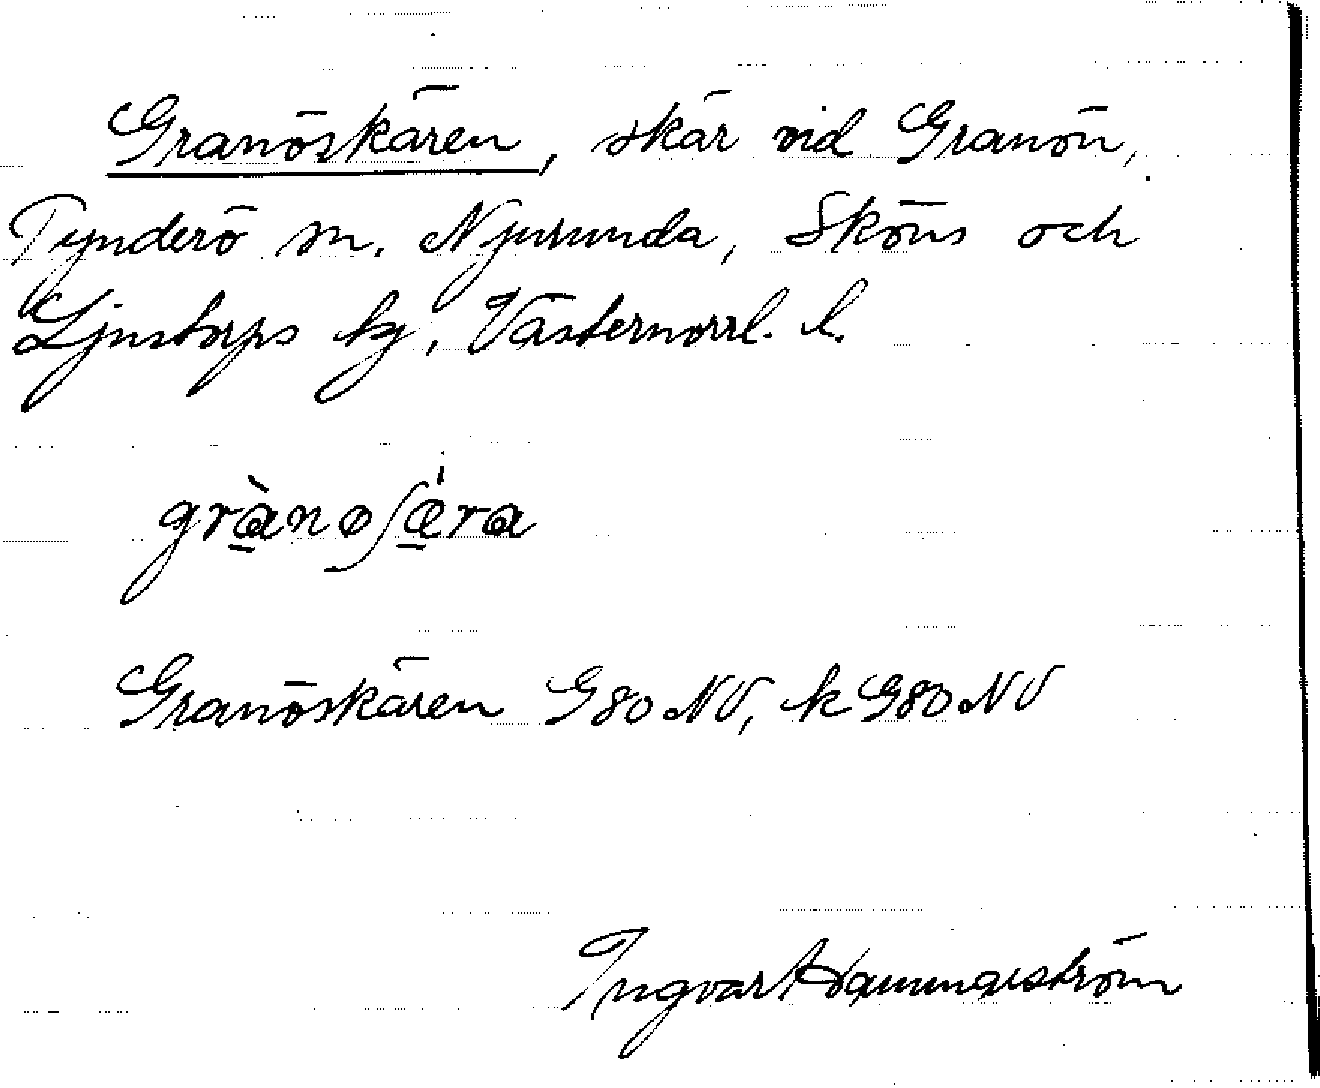 Granöskären, skär vid Granön,
Tynderö sn. Njurunda, Sköns och
Ljustorps tg, Västernorrl. l.
grànoʃǽra
Granöskären G80 NV, k G80 NV
Ingvar Hammarström